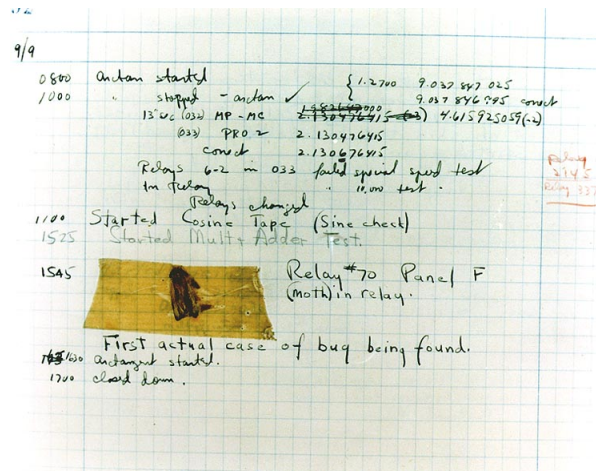 9/9
0800 arctan started
1000 " stopped - arctan ✓ { 1.2700 9.037 847 025
9.037 846 995 correct
13" uc (032) MP - MC 2.130476415 4.615925059(-2)
(033) PRO 2 2.130476415
correct 2.130676415
Relays 6-2 in 033 failed special speed test
In Relay " 10,000 test.
Relays changed
1100 Started Cosine Tape (Sine check)
1525 Started Mult+Adder Test.
1545 Relay #70 Panel F
(moth) in relay.
First actual case of bug being found.
1630 arctangent started.
1700 closed down.
Relay
2145
Relay 337